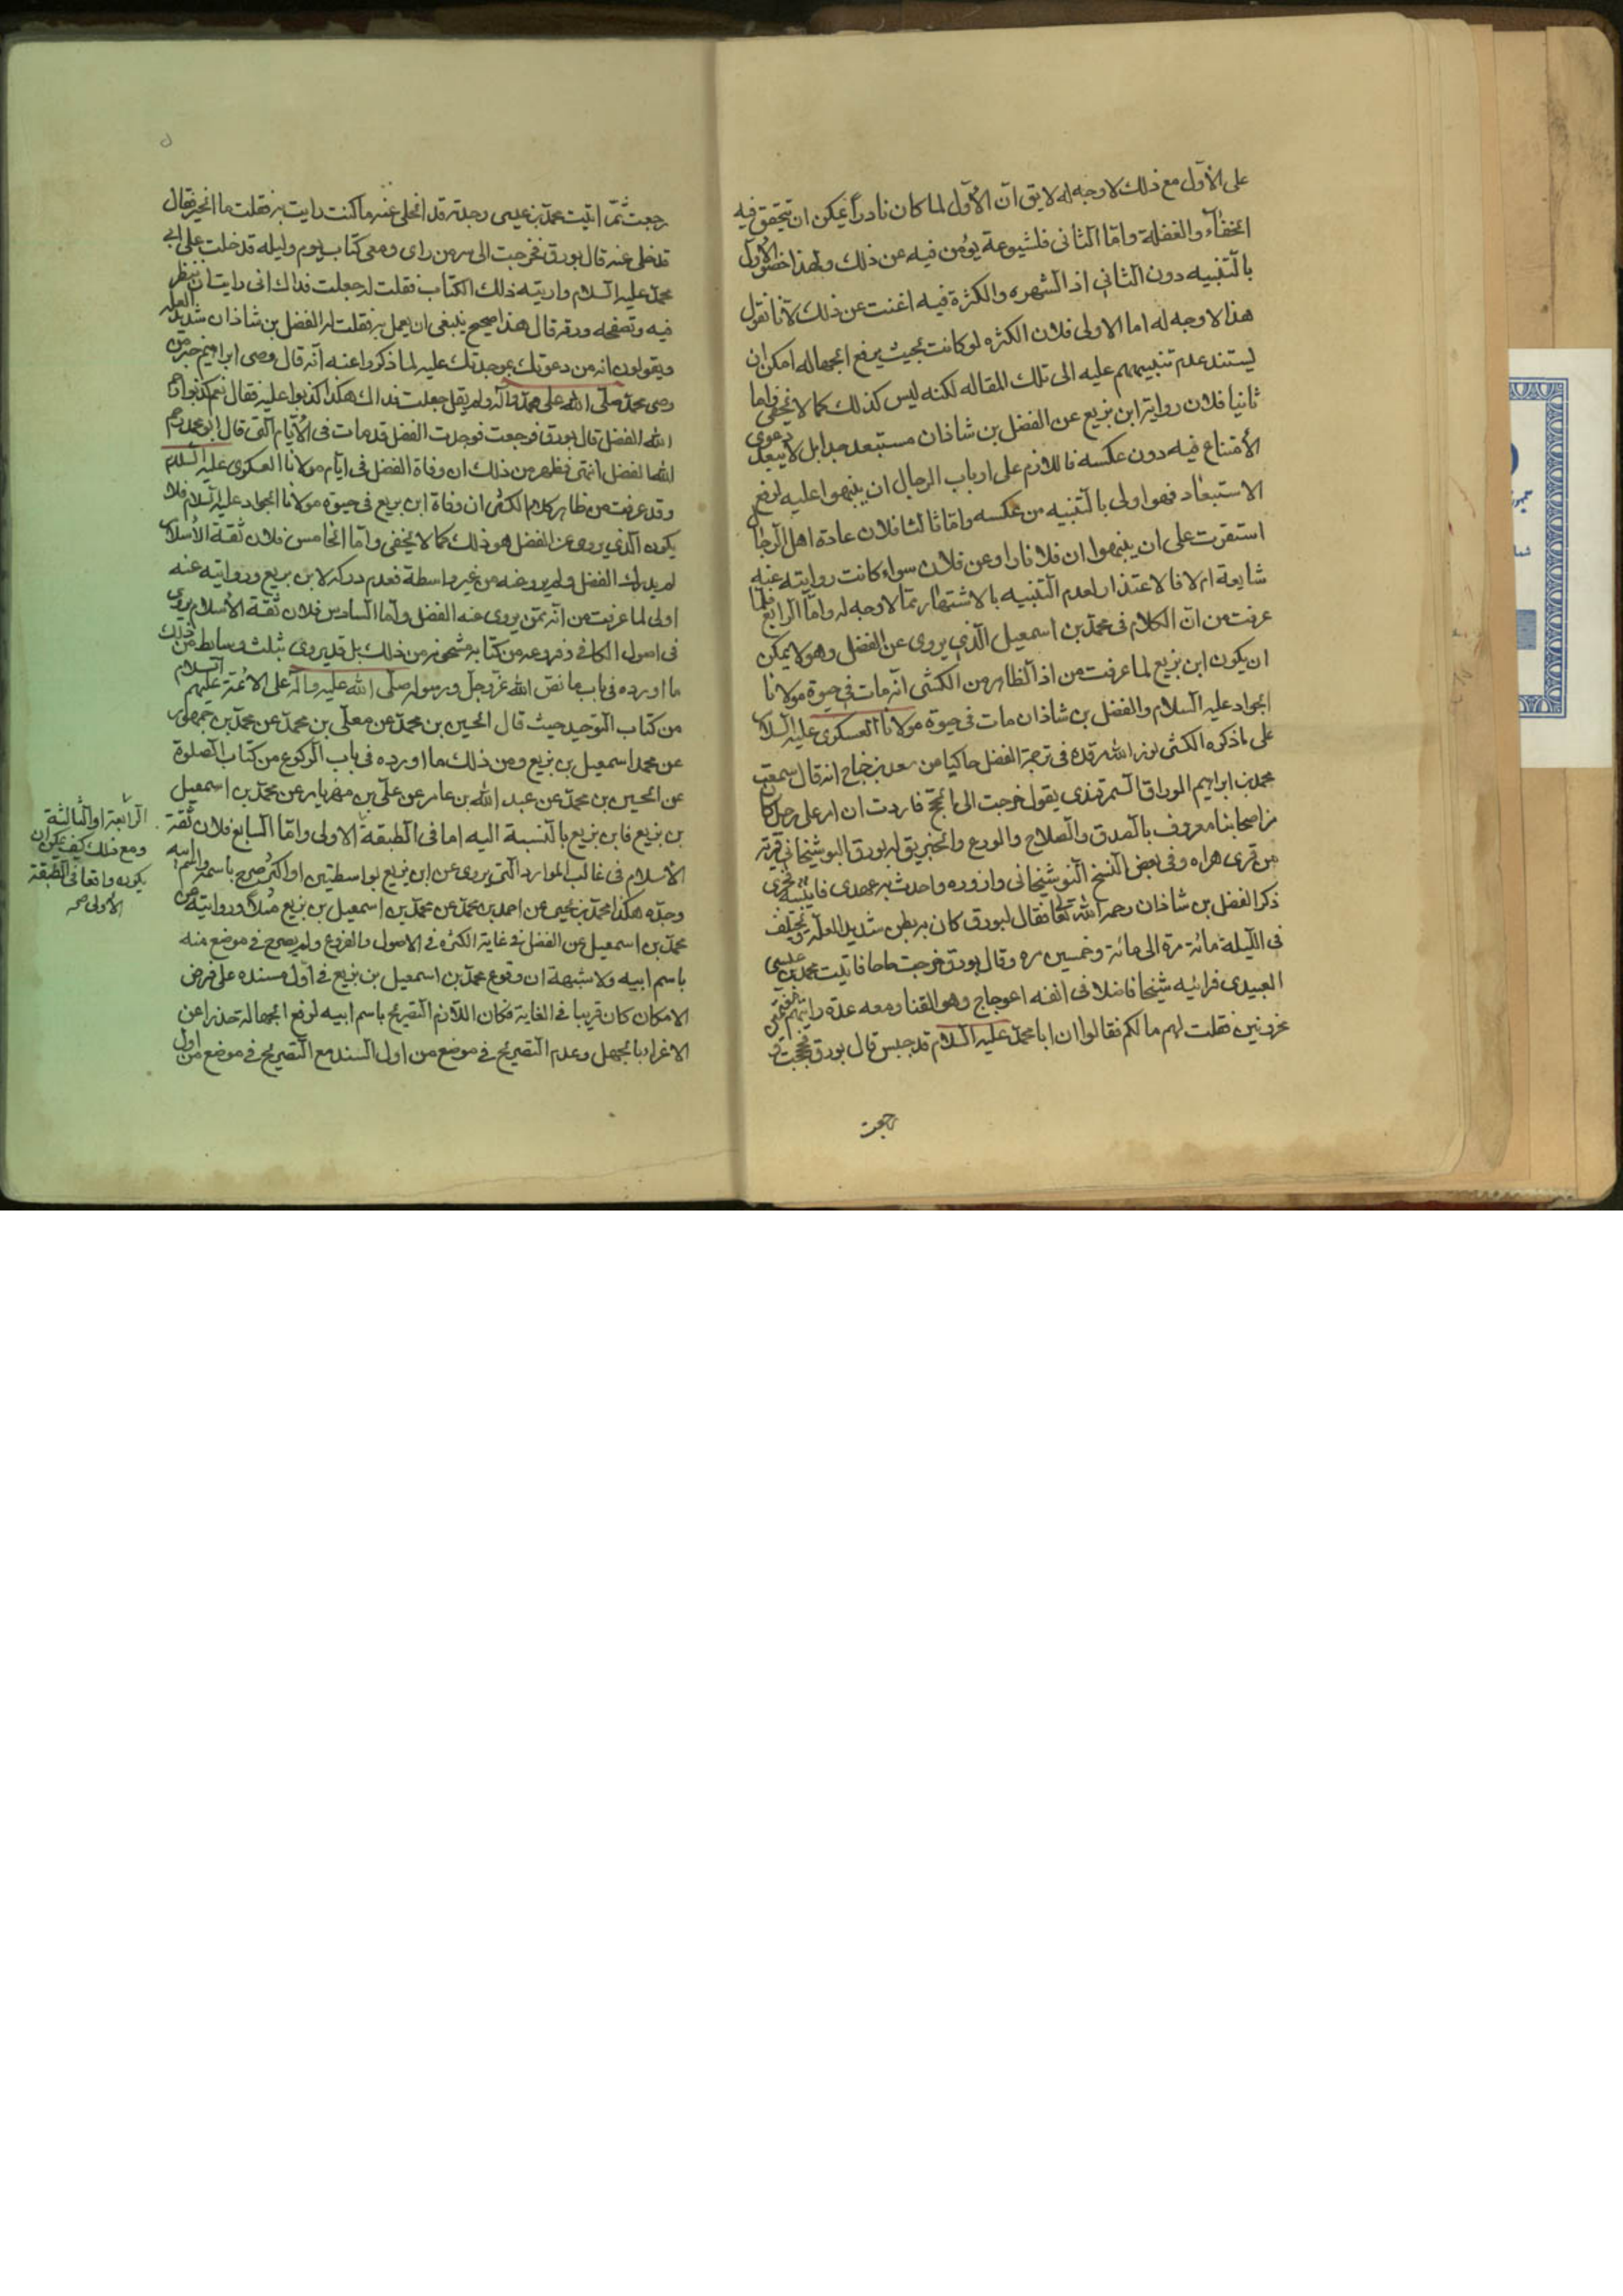 على الأوّل مع ذلك لا وجه له لا يق انّ الأوّل لما كان نادراً يمكن ان يتحقق فيه
الخفآء والغفلة وامّا الثانى فلشيوعه يؤمن فيه من ذلك ولهذا خصّوا الأول
بالتنبيه دون الثانى اذ الشهره والكثرة فيه اغنت عن ذلك لأنا نقول
هذا لا وجه له اما الاولى فلان الكثره لو كانت بحيث يرفع الجهاله امكن ان
يستند عدم تنبيههم عليه الى تلك المقاله لكنه ليس كذلك كما لا يخفى واما
ثانيا فلان رواية ابن بزيع عن الفضل بن شاذان مستبعد جدا بل لا يبعد دعوى
الأمتناع فيه دون عكسه فاللازم على ارباب الرجال ان ينبهوا عليه لرفع
الاستبعاد فهو اولى بالتنبيه من عكسه وامّا ثالثا فلان عادة اهل الرجال
استقرت على ان ينبهوا ان فلانا راو عن فلان سواء كانت روايته عنه
شايعة ام لا فالاعتذار لعدم التنبيه بالاشتهار ممّا لا وجه له وامّا الرابع فلما
عرفت من انّ الكلام فى محمّد بن اسمعيل الّذى يروى عن الفضل وهو لا يمكن
ان يكون ابن بزيع لما عرفت من اذ الظاهر من الكشى انّه مات فى حيوة مولانا
الجواد عليه السلام والفضل بن شاذان مات فى حيوة مولانا العسكرى عليه السلام
على ما ذكره الكشى نور الله مرقده فى ترجمة الفضل حاكيا من سعد بن جناح انه قال سمعت
محمد بن ابراهيم الوراق السمرقندى يقول خرجت الى الحجّ فاردت ان امر على رجل كان
من اصحابنا معروف بالصدق والصلاح والورع والخير يق له بورق البوشنجانى قرية
من قرى هراه وفى بعض النسخ النوشنجانى وازوره واحدث به عهدى فاتيته فجرى
ذكر الفضل بن شاذان رحمه الله تعالى فقال بورق كان به بطن شديد العلّه ويختلف
فى الليلة مائة مرة الى مائة وخمسين مره وقال بورق خرجت حاجا فاتيت محمد بن عيسى
العبيدى فرايته شيخا فاضلا فى انفه اعوجاج وهو القنا ومعه عدة رايتهم مغتمين
محزونين فقلت لهم ما لكم فقالوا ان ابا محمّد عليه السلام قد حبس قال بورق فحججت و
رجعت
رجعت ثمّ اتيت محمّد بن عيسى وجدته قد انجلى عنه ما كنت رايت به فقلت ما الخبر فقال
قد خلى عنه قال بورق فخرجت الى سر من راى ومعى كتاب يوم وليله قد خلت على ابى
محمّد عليه السلام واريته ذلك الكتاب فقلت له جعلت فداك انى رايت ان تنظر
فيه وتصفحه ورقه قال هذا صحيح ينبغى ان يعمل به فقلت له الفضل بن شاذان شديد العله
ويقولون انه من دعوتك بموجدتك عليه لما ذكروا عنه انّه قال وصى ابراهيم خير من
وصى محمّد صلّى الله على محمّد وآله ولم يقل جعلت فداك هكذا كذبوا عليه فقال نعم كذبوا
الله الفضل قال بورق فرجعت فوجدت الفضل قد مات فى الأيّام الّتى قال ابو محمد رحم
الله الفضل انتهى فظهر من ذلك ان وفاة الفضل فى ايّام مولانا العسكرى عليه السلام
وقد عرفت من ظاهر كلام الكشى ان وفاة ابن بزيع فى حيوة مولانا الجواد عليه السلام فلا
يكون الّذى يروى عن الفضل هو ذلك كما لا يخفى وامّا الخامس فلان ثقة الأسلام
لم يدرك الفضل ولم يرو عنه من غير واسطة فعدم دركه لابن بزيع وروايته عنه
اولى لما عرفت من انّه ممّن يروى عنه الفضل وامّا السادس فلان ثقة الأسلام يروى
فى اصول الكافى وفروعه من كتابه مشحونه من ذلك بل قد يروى بثلث وسائط من ذلك
ما اورده فى باب ما نصّ الله عزّ وجلّ ورسوله صلّى الله عليه وآله على الأئمّة عليهم السلام
من كتاب التوحيد حيث قال الحسين بن محمّد عن معلّى بن محمّد عن محمّد بن جمهور
عن محمد اسمعيل بن بزيع ومن ذلك ما اورده فى باب الركوع من كتاب الصلوة
عن الحسين بن محمّد عن عبد الله بن عامر عن علّى بن مهزيار عن محمّد بن اسمعيل
بن بزيع فابن بزيع بالنسبة اليه اما فى الطبقة الاولى وامّا السابع فلان ثقة
الأسلام فى غالب الموارد الّتى يروى عن ابن بزيع بواسطتين او اكثر صرح باسمه واسم ابيه
وجدّه هكذا محمّد بن يحيى عن احمد بن محمّد عن محمّد بن اسمعيل بن بزيع مثلاً وروايته عن
محمّد بن اسمعيل عن الفضل فى غاية الكثره فى الاصول والفروع ولم يصرح فى موضع منه
باسم ابيه ولا شبهة ان وقوع محمّد بن اسمعيل بن بزيع فى اوّل سنده على فرض
الامكان كان قريبا فى الغاية فكان اللازم التصريح باسم ابيه لرفع الجهالة حذرا عن
الاغراء بالجهل وعدم التصريح فى موضع من اول السند مع التصريح فى موضع من اول
الرّابعة او الثّالثة
ومع ذلك كيف يمكن ان
يكون واقعا فى الطّبقة
الأولى صح